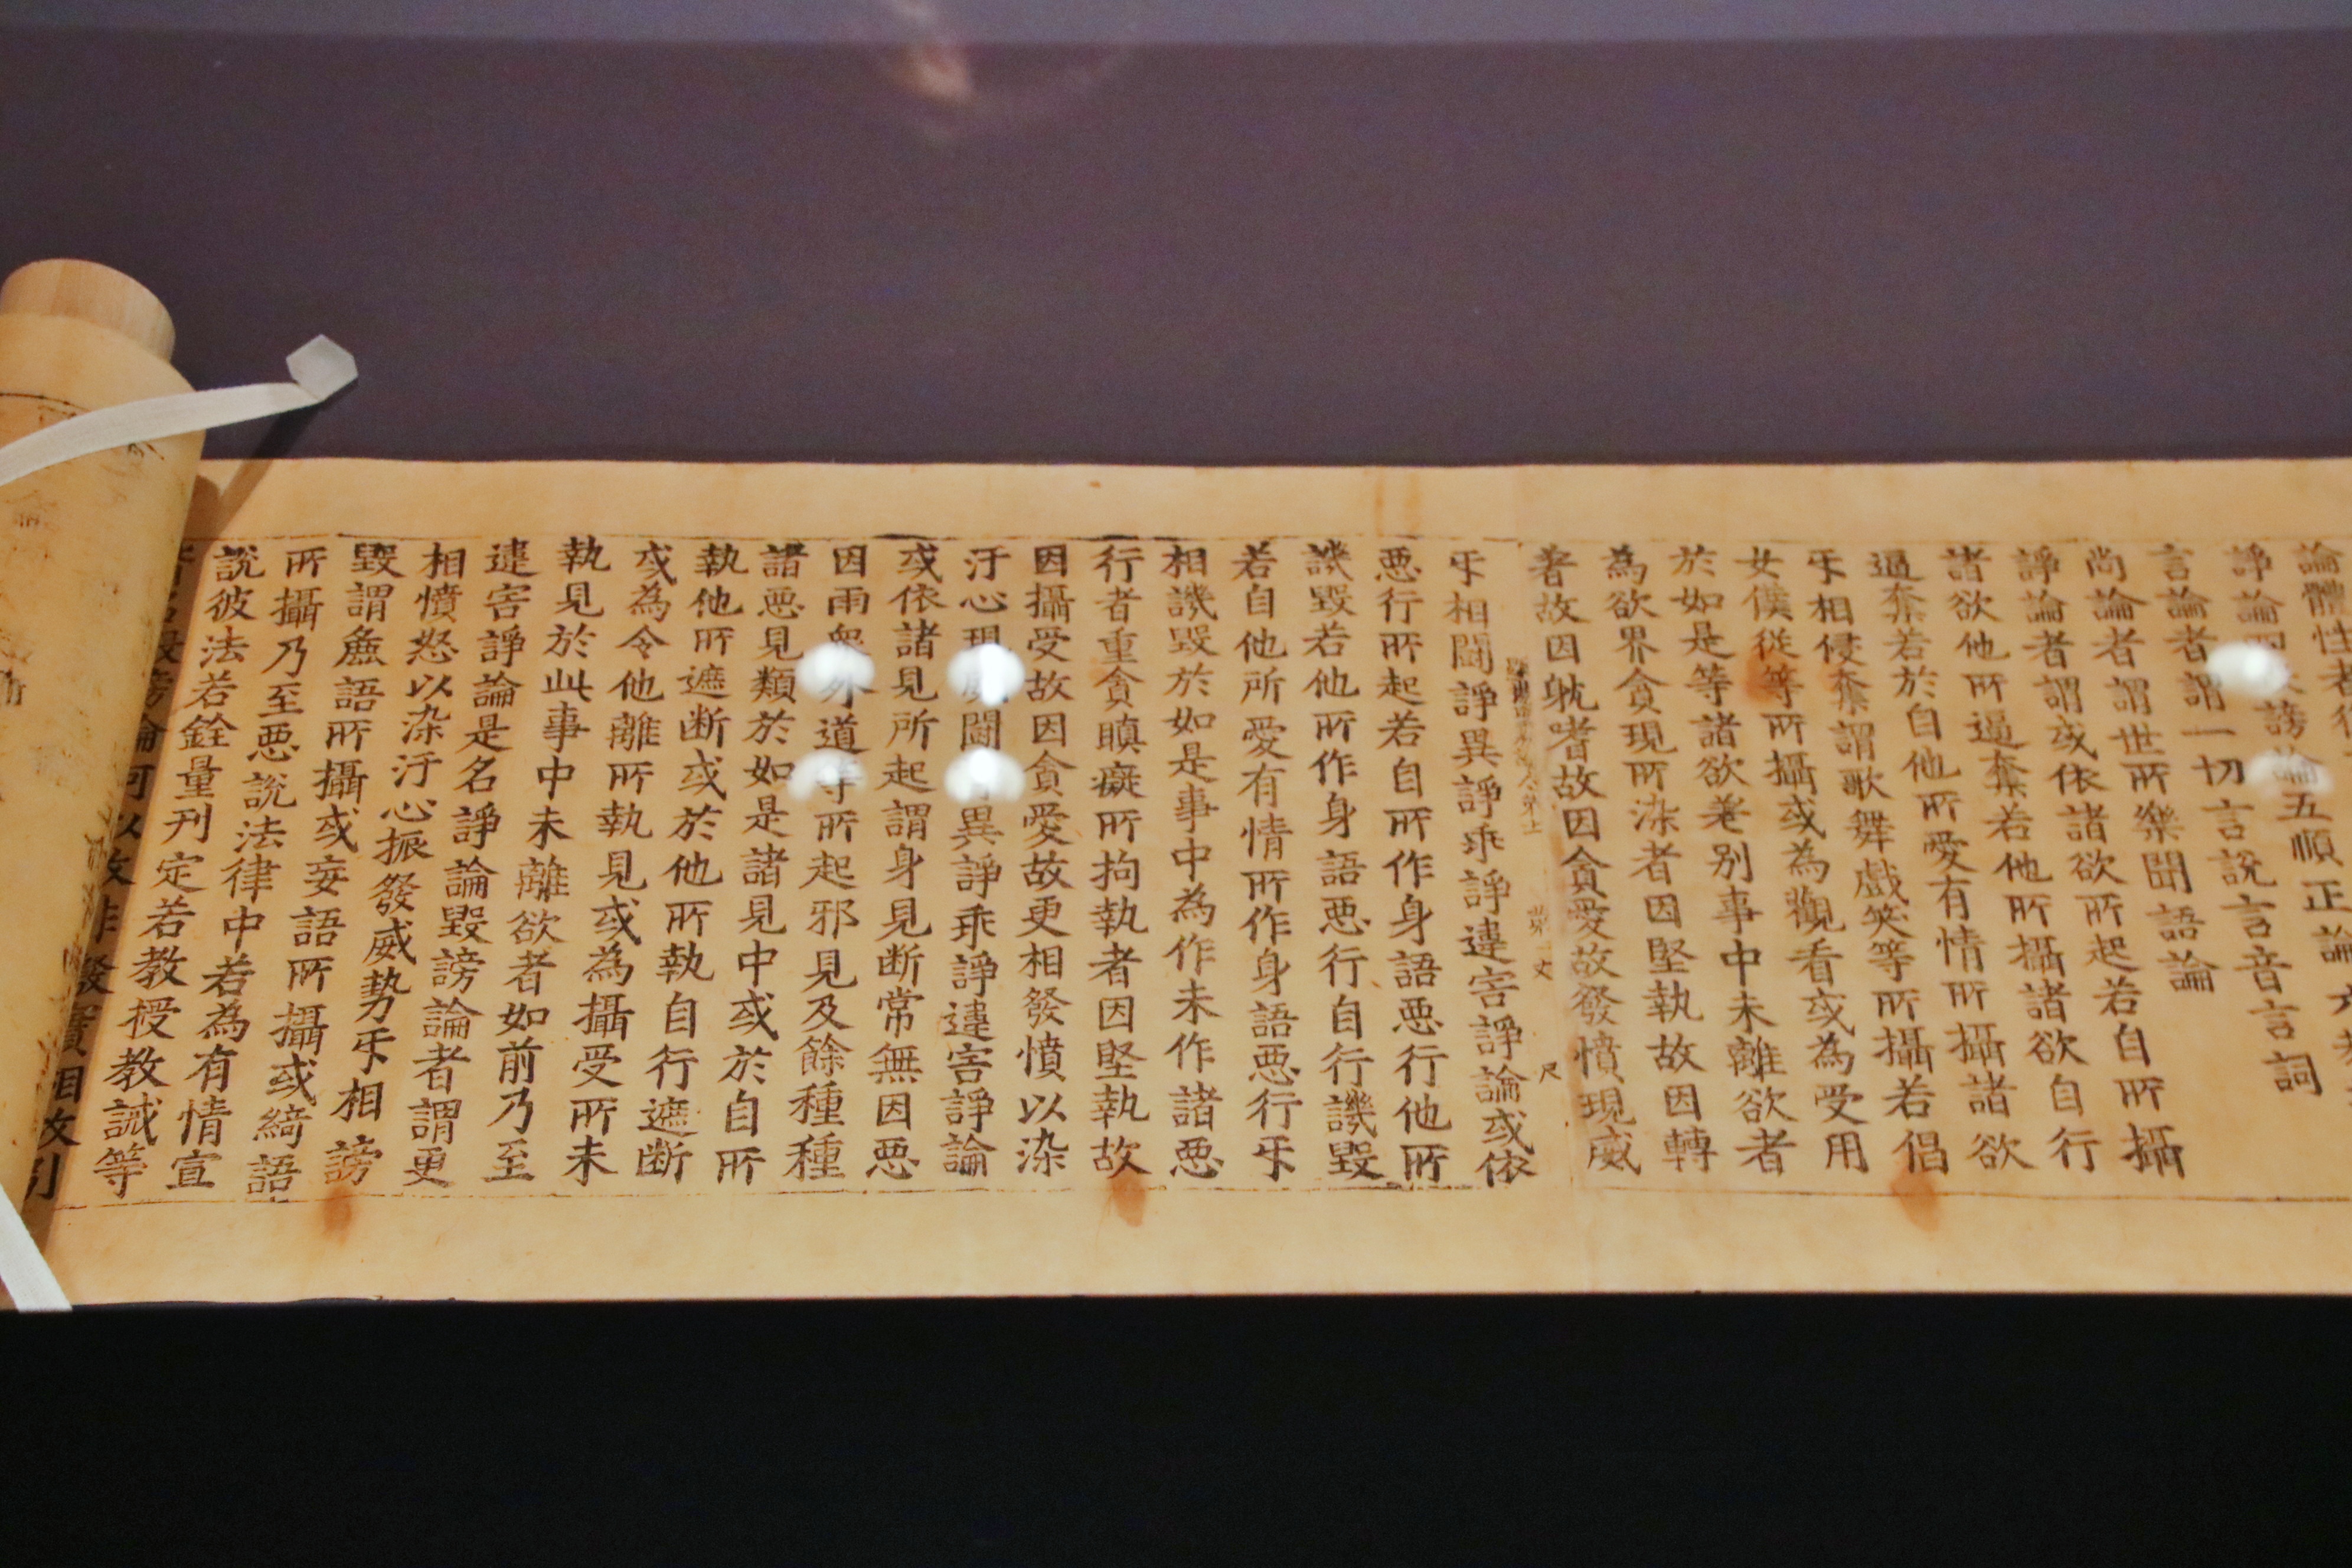 論體性者
諍論四 謗論五順正論六
言論者謂一切言說言音言詞
尚論者謂世所樂聞語論
諍論者謂或依諸欲所起若自所攝
諸欲他所逼奪若他所攝諸欲自行
逼奪若於自他所愛有情所攝諸欲
㸦相侵奪謂歌舞戲笑等所攝若倡
女僕從等所攝或為觀看或為受用
於如是等諸欲差別事中未離欲者
為欲界貪現所染者因堅執故因轉
著故因躭嗜故因貪愛故發憤現威
㸦相鬪諍異諍乖諍違害諍論或依
惡行所起若自所作身語惡行他所
譏毀若他所作身語惡行自行譏毀
若自他所愛有情所作身語惡行㸦
相譏毀於如是事中為作未作諸惡
行者重貪瞋癡所拘執者因堅執故
因攝受故因貪愛故更相發憤以染
汙心現 鬪 異諍乖諍違害諍論
或依諸見所起謂身見断常無因惡
因雨衆外道等所起邪見及餘種種
諸惡見類於如是諸見中或於自所
執他所遮断或於他所執自行遮断
或為令他離所執見或為攝受所未
執見於此事中未離欲者如前乃至
違害諍論是名諍論毀謗論者謂更
相憤怒以染汙心振發威勢㸦相謗
毀謂麁語所攝或妄語所攝或綺語
所攝乃至惡說法律中若為有情宣
說彼法若銓量刋定若教授教誡等